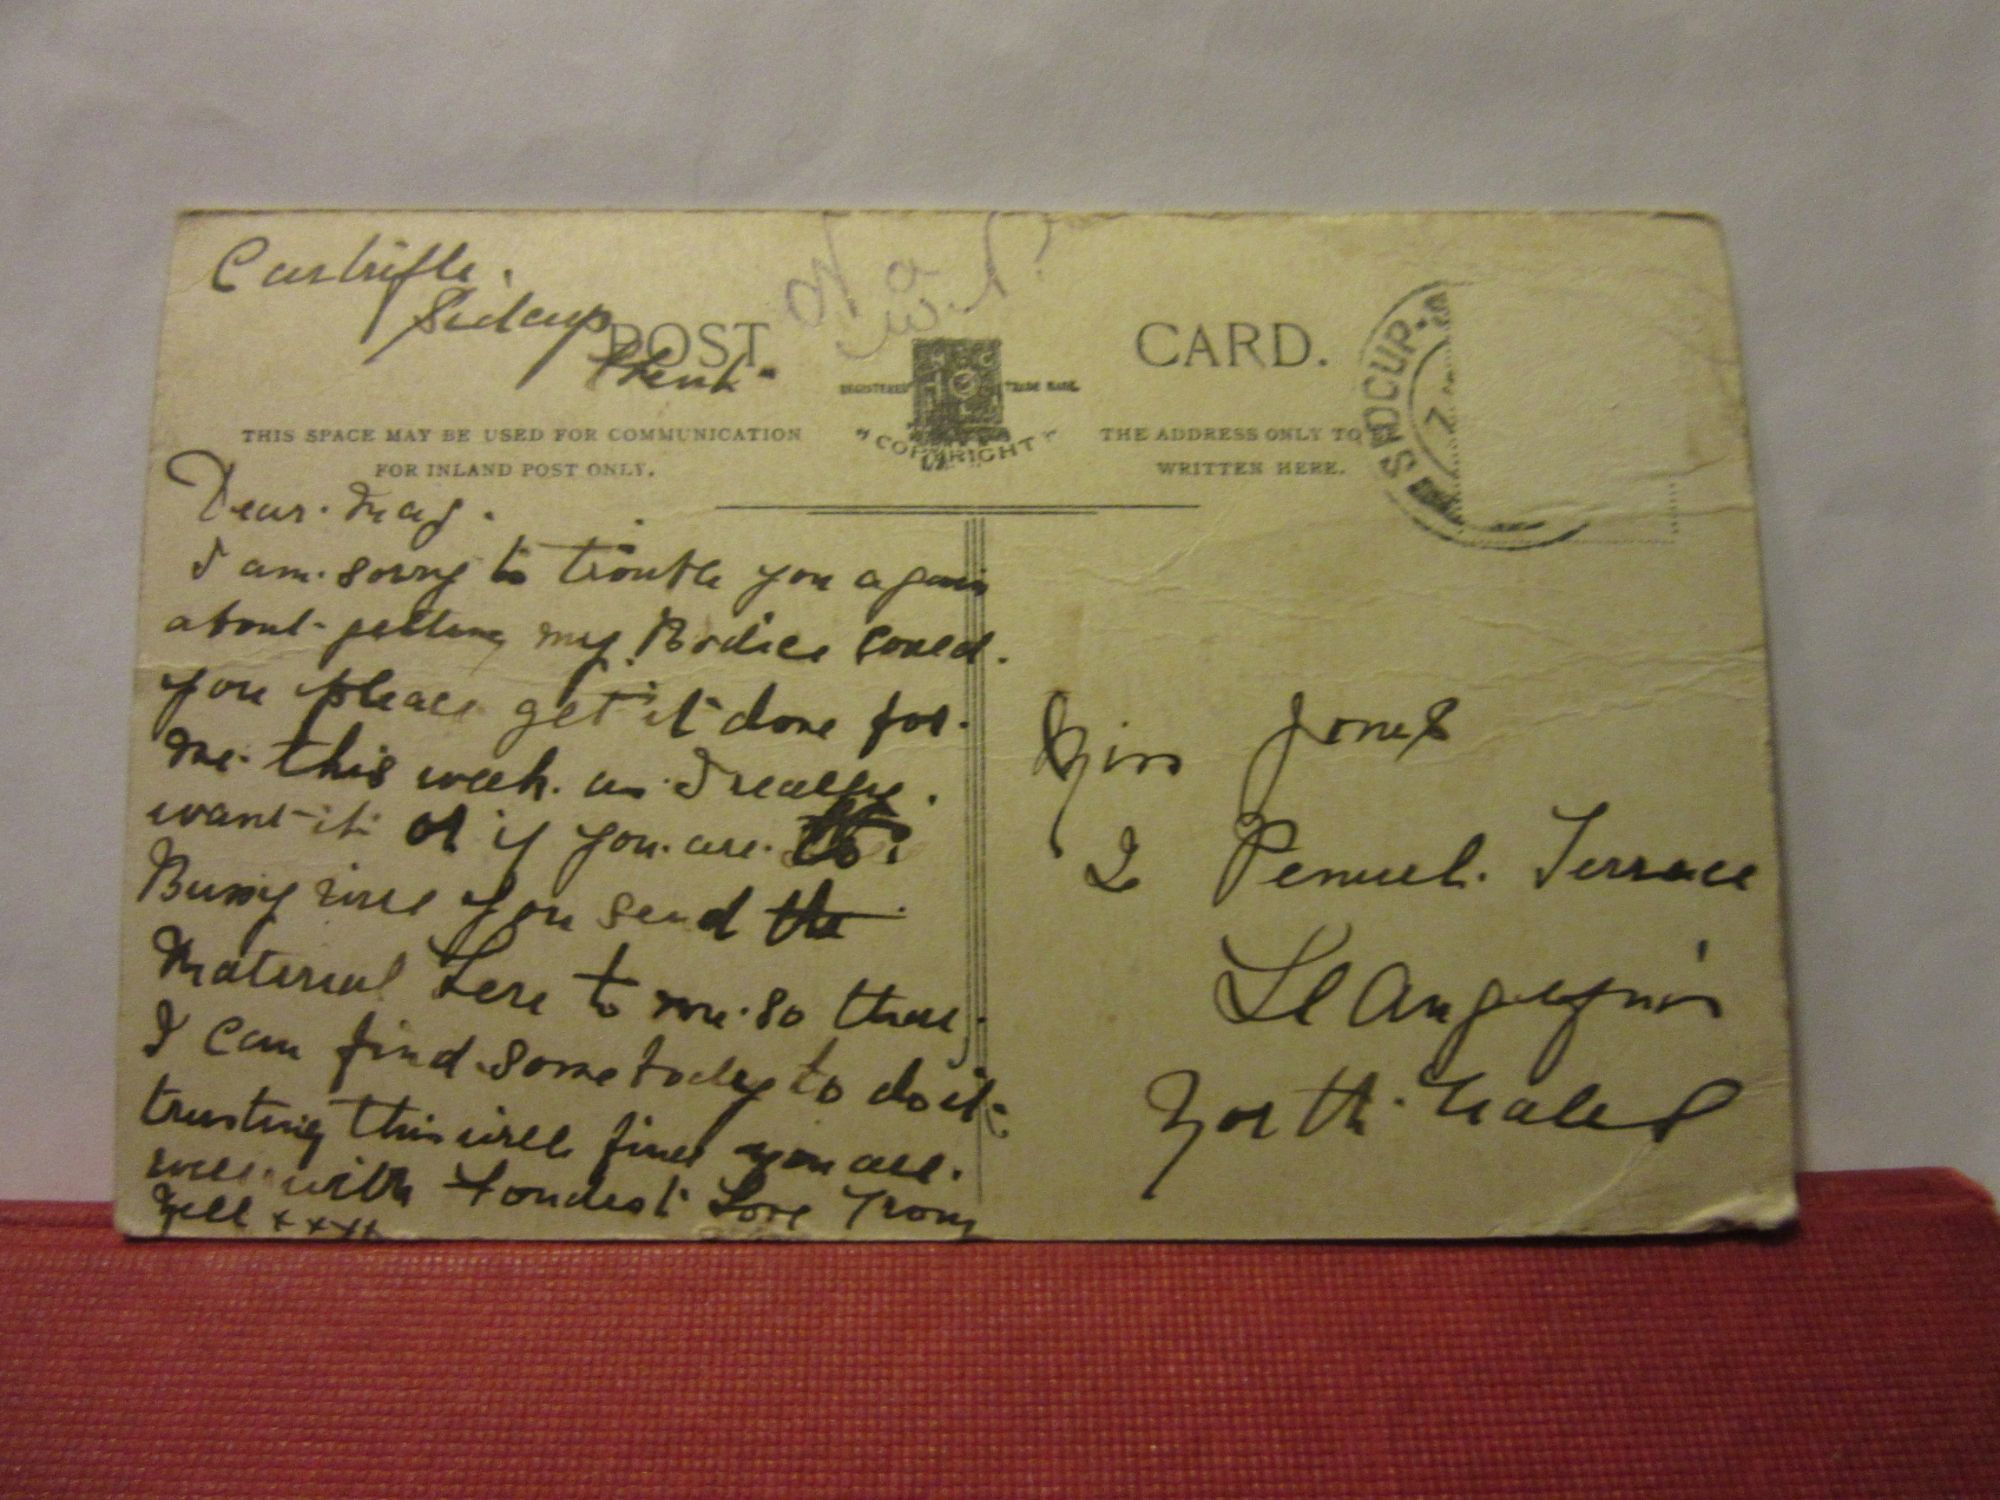 Sidcup
Kent
POST CARD.
REGISTERED TRADE MARK
"COPYRIGHT"
THIS SPACE MAY BE USED FOR COMMUNICATION
FOR INLAND POST ONLY.
THE ADDRESS ONLY TO
WRITTEN HERE.
SIDCUP.
7
Dear May.
I am sorry to trouble you again
about getting my Bodice
you please get it done for
me this week as I really
want it or if you are
Bussy will you send the
Material here to me so that
I can find somebody to do it
trusting this will find you all
well with Fondest Love From
Nell xxxx
Miss Jones
2 Penuel Terrace
Llangefni
North Wales